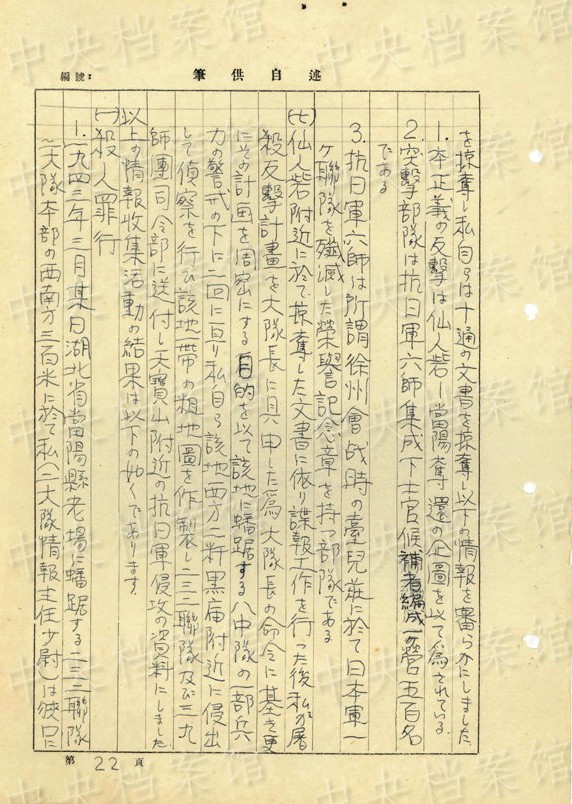 編號：
筆供自述
を掠奪し私自らは十通の文書を掠奪し以下の情報を審らかにしました
1. 本正義の反擊は仙人砦—當陽奪還の企圖を以て為されている
2. 突擊部隊は抗日軍六師集成下士官候補者編成一ヶ營五百名
である
3. 抗日軍六師は所謂徐州會戰時の臺兒莊に於て日本軍一
ヶ聯隊を殲滅した榮譽記念章を持つ部隊である
(七)仙人砦附近に於て掠奪した文書に依り諜報工作を行った後私の屠
殺反擊計畫を大隊長に具申した為大隊長の命令に基き更
にその計画を周密にする目的を以て該地に蟠踞する八中隊の部兵
力の警戒の下に二回に亘り私自ら該地西方一粁黒庙附近に侵出
して偵察を行い該地帯の粗地圖を作製し二三二聯隊及び三九
師團司令部に送付し天寶山附近の抗日軍侵攻の資料にしました
以上の情報收集活動の結果は以下の如くであります
(一)殺人罪行
1. 一九四三年三月某日湖北省當陽縣老場に蟠踞する二三二聯隊
二大隊本部の西南方三百米に於て私(二大隊情報主任少尉)は峡口に
第22頁
中央档案馆